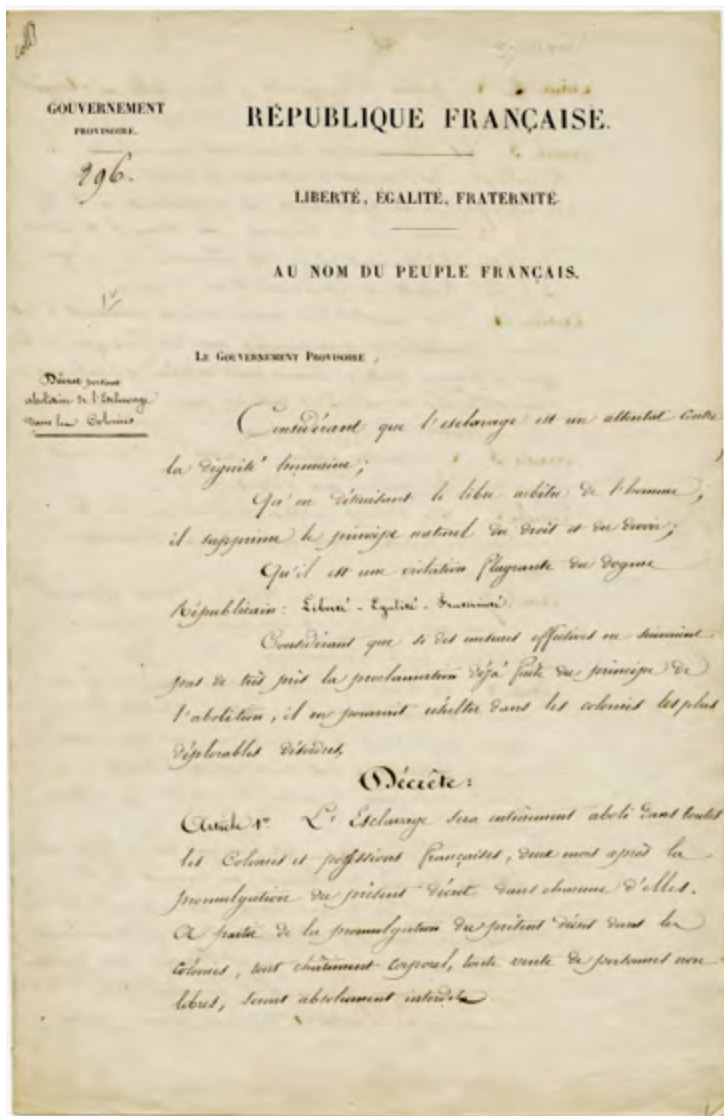 GOUVERNEMENT
PROVISOIRE.
296.
RÉPUBLIQUE FRANÇAISE.
LIBERTÉ, ÉGALITÉ, FRATERNITÉ.
AU NOM DU PEUPLE FRANÇAIS.
LE GOUVERNEMENT PROVISOIRE,
Décret portant
abolition de l'Esclavage
dans les Colonies
Considérant que l'esclavage est un attentat contre
la dignité humaine;
Qu'en détruisant le libre arbitre de l'homme,
il supprime le principe naturel du droit et du devoir;
Qu'il est une violation flagrante du dogme
Républicain: Liberté - Egalité - Fraternité
Considérant que si des mesures effectives ne suivaient
pas de très près la proclamation déjà faite du principe de
l'abolition, il en pourrait résulter dans les colonies les plus
déplorables désordres,
Décrète:
Article 1er. L'Esclavage sera entièrement aboli dans toutes
les Colonies et possessions françaises, deux mois après la
promulgation du présent décret dans chacune d'elles.
A partir de la promulgation du présent décret dans les
colonies, tout châtiment corporel, toute vente de personnes non
libres, seront absolument interdits